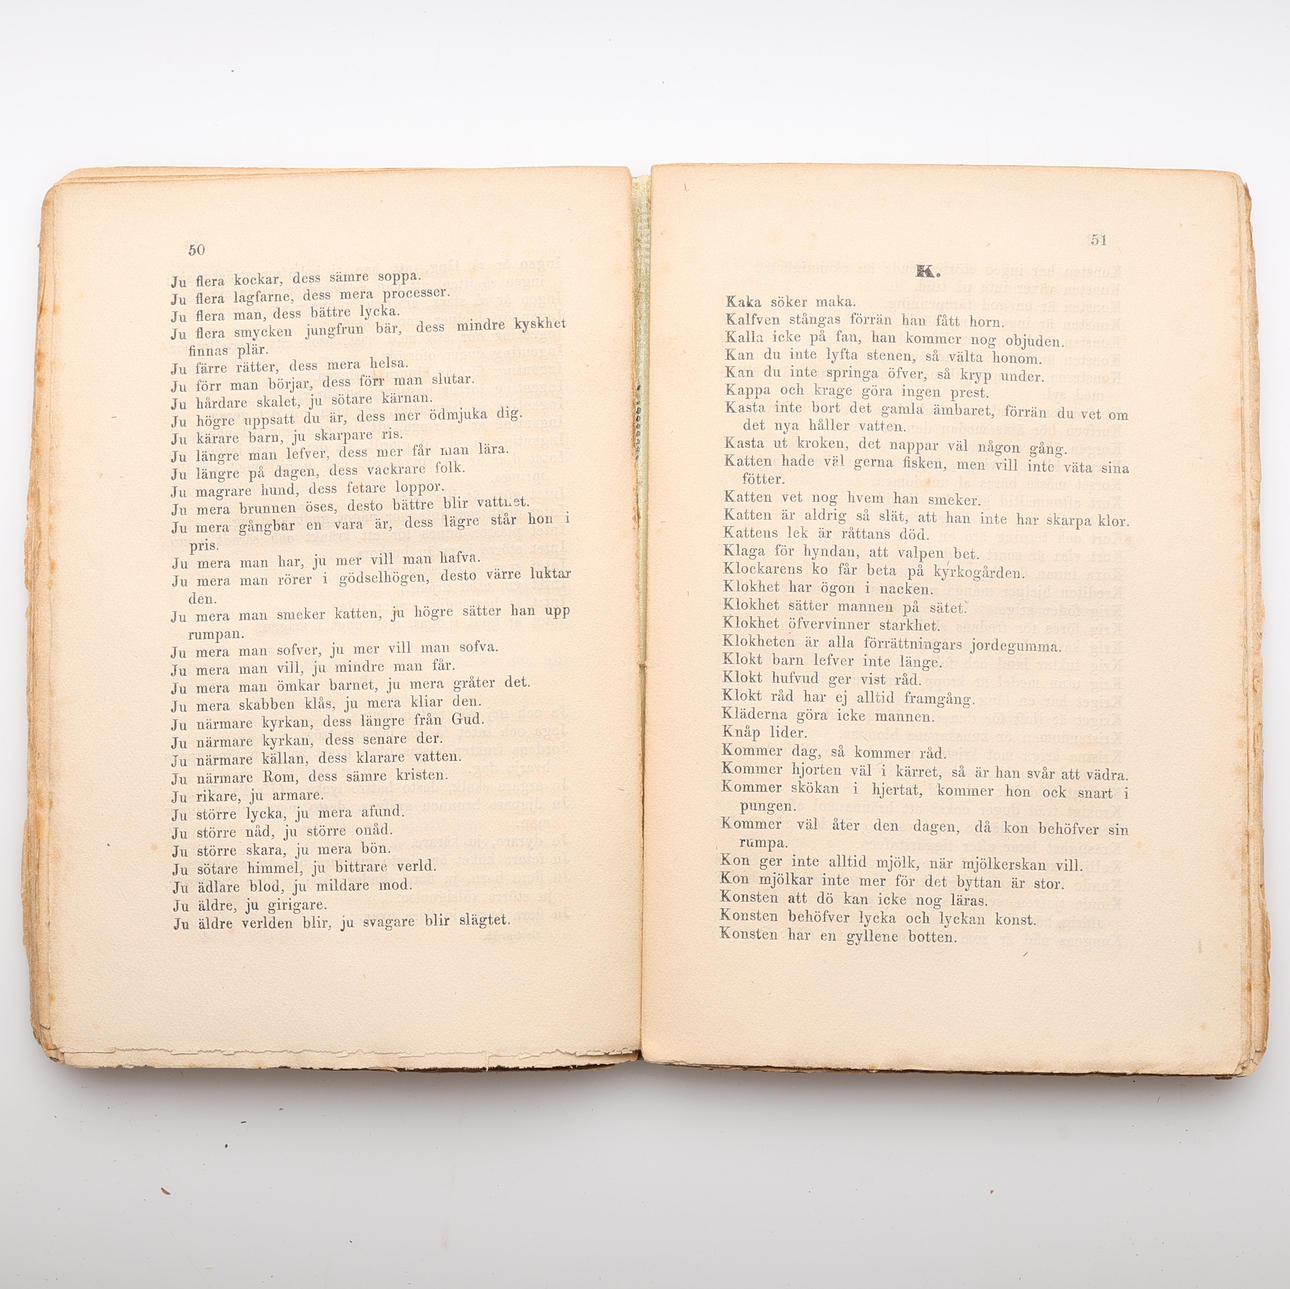 50
Ju flera kockar, dess sämre soppa.
Ju flera lagfarne, dess mera processer.
Ju flera man, dess bättre lycka.
Ju flera smycken jungfrun bär, dess mindre kyskhet
finnas plär.
Ju färre rätter, dess mera helsa.
Ju förr man börjar, dess förr man slutar.
Ju hårdare skalet, ju sötare kärnan.
Ju högre uppsatt du är, dess mer ödmjuka dig.
Ju kärare barn, ju skarpare ris.
Ju längre man lefver, dess mer får man lära.
Ju längre på dagen, dess vackrare folk.
Ju magrare hund, dess fetare loppor.
Ju mera brunnen öses, desto bättre blir vattnet.
Ju mera gångbar en vara är, dess lägre står hon i
pris.
Ju mera man har, ju mer vill man hafva.
Ju mera man rörer i gödselhögen, desto värre luktar
den.
Ju mera man smeker katten, ju högre sätter han upp
rumpan.
Ju mera man sofver, ju mer vill man sofva.
Ju mera man vill, ju mindre man får.
Ju mera man ömkar barnet, ju mera gråter det.
Ju mera skabben klås, ju mera kliar den.
Ju närmare kyrkan, dess längre från Gud.
Ju närmare kyrkan, dess senare der.
Ju närmare källan, dess klarare vatten.
Ju närmare Rom, dess sämre kristen.
Ju rikare, ju armare.
Ju större lycka, ju mera afund.
Ju större nåd, ju större onåd.
Ju större skara, ju mera bön.
Ju sötare himmel, ju bittrare verld.
Ju ädlare blod, ju mildare mod.
Ju äldre, ju girigare.
Ju äldre verlden blir, ju svagare blir slägtet.
51
K.
Kaka söker maka.
Kalfven stångas förrän han fått horn.
Kalla icke på fan, han kommer nog objuden.
Kan du inte lyfta stenen, så välta honom.
Kan du inte springa öfver, så kryp under.
Kappa och krage göra ingen prest.
Kasta inte bort det gamla ämbaret, förrän du vet om
det nya håller vatten.
Kasta ut kroken, det nappar väl någon gång.
Katten hade väl gerna fisken, men vill inte väta sina
fötter.
Katten vet nog hvem han smeker.
Katten är aldrig så slät, att han inte har skarpa klor.
Kattens lek är råttans död.
Klaga för hyndan, att valpen bet.
Klockarens ko får beta på kyrkogården.
Klokhet har ögon i nacken.
Klokhet sätter mannen på sätet.
Klokhet öfvervinner starkhet.
Klokheten är alla förrättningars jordegumma.
Klokt barn lefver inte länge.
Klokt hufvud ger vist råd.
Klokt råd har ej alltid framgång.
Kläderna göra icke mannen.
Knåp lider.
Kommer dag, så kommer råd.
Kommer hjorten väl i kärret, så är han svår att vädra.
Kommer skökan i hjertat, kommer hon ock snart i
pungen.
Kommer väl åter den dagen, då kon behöfver sin
rumpa.
Kon ger inte alltid mjölk, när mjölkerskan vill.
Kon mjölkar inte mer för det byttan är stor.
Konsten att dö kan icke nog läras.
Konsten behöfver lycka och lyckan konst.
Konsten har en gyllene botten.